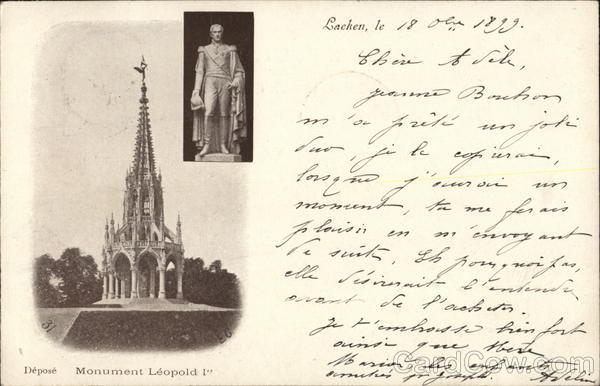 Laeken, le 18 8bre 1899
Chère Adèle,
Jeanne
m'a prêté un joli
duo, je le copierai,
lorsque j'aurai un
moment, tu me ferais
plaisir en m'envoyant
de suite. Eh pourquoi pas,
elle désirerait l'entendre
avant de l'acheter.
Je t'embrasse bien fort
ainsi que
Marie
amitiés Joseph.
31
Déposé Monument Léopold Ier
CardCow.com